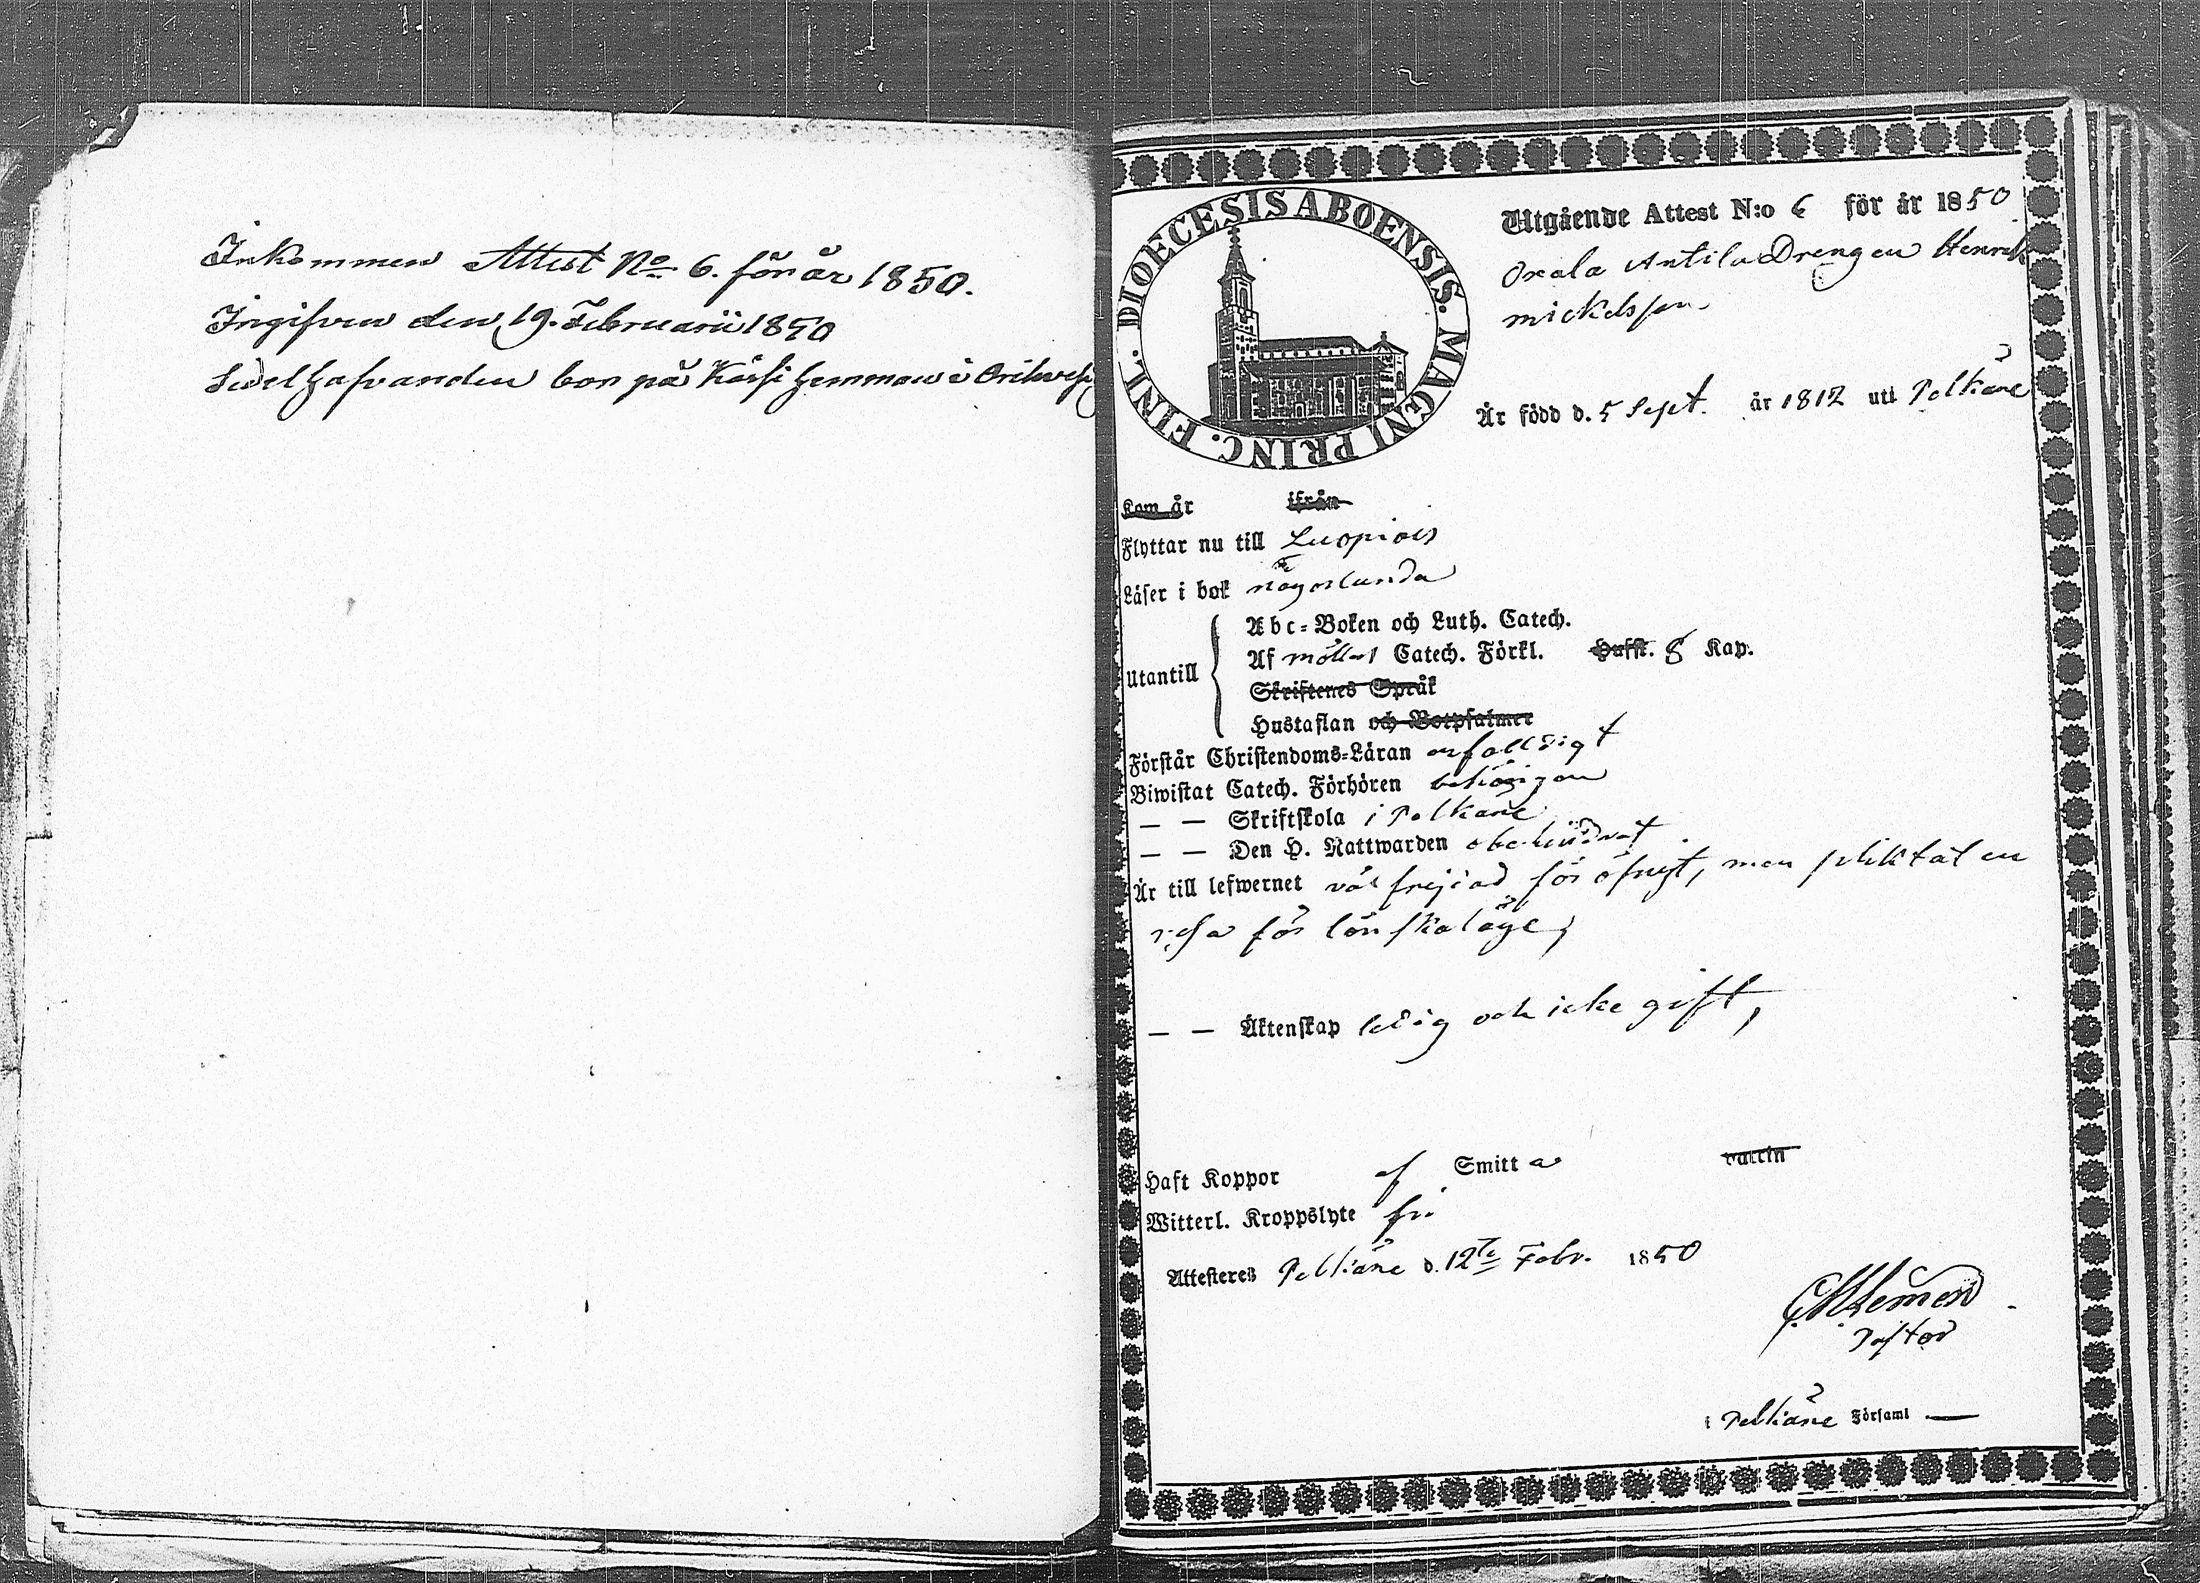 Inkommen Attest No 6. för år 1850.
Ingifven den 19. Februarii 1850
Sedelhafvanden bor på Kässi hemman i Orihvesi
DIOECESIS ABOENSIS. MAGNI PRINC. FINL.
Utgående Attest N:o 6 för år 1850
Orala Antila Drengen Henrik
Mickelsson
Är född d. 5 Sept. år 1812 uti Pelkäne
Kom år ifrån
Flyttar nu till Luopiois
Läser i bok någorlunda
Utantill
Abc-Boken och Luth. Catech.
Af möllers Catech. Förkl. Hufst. 8 Kap.
Skriftenes Språk
Hustaflan och Botpsalmer
Förstår Christendoms-Läran enfalldigt
Biwistat Catech. Förhören behörigen
— — Skriftskola i Pelkäne
— — Den H. Nattwarden obehindrat
Är till lefwernet väl frejdad för öfrigt, men pliktat en
resa för lönskaläge,
— — Äktenskap ledig och icke gift,
Haft Koppor af Smitta vaccin
Witterl. Kroppslyte fri
Attesteres Pelkäne d. 12te Febr. 1850
Pastor
i Pelkäne Församl —